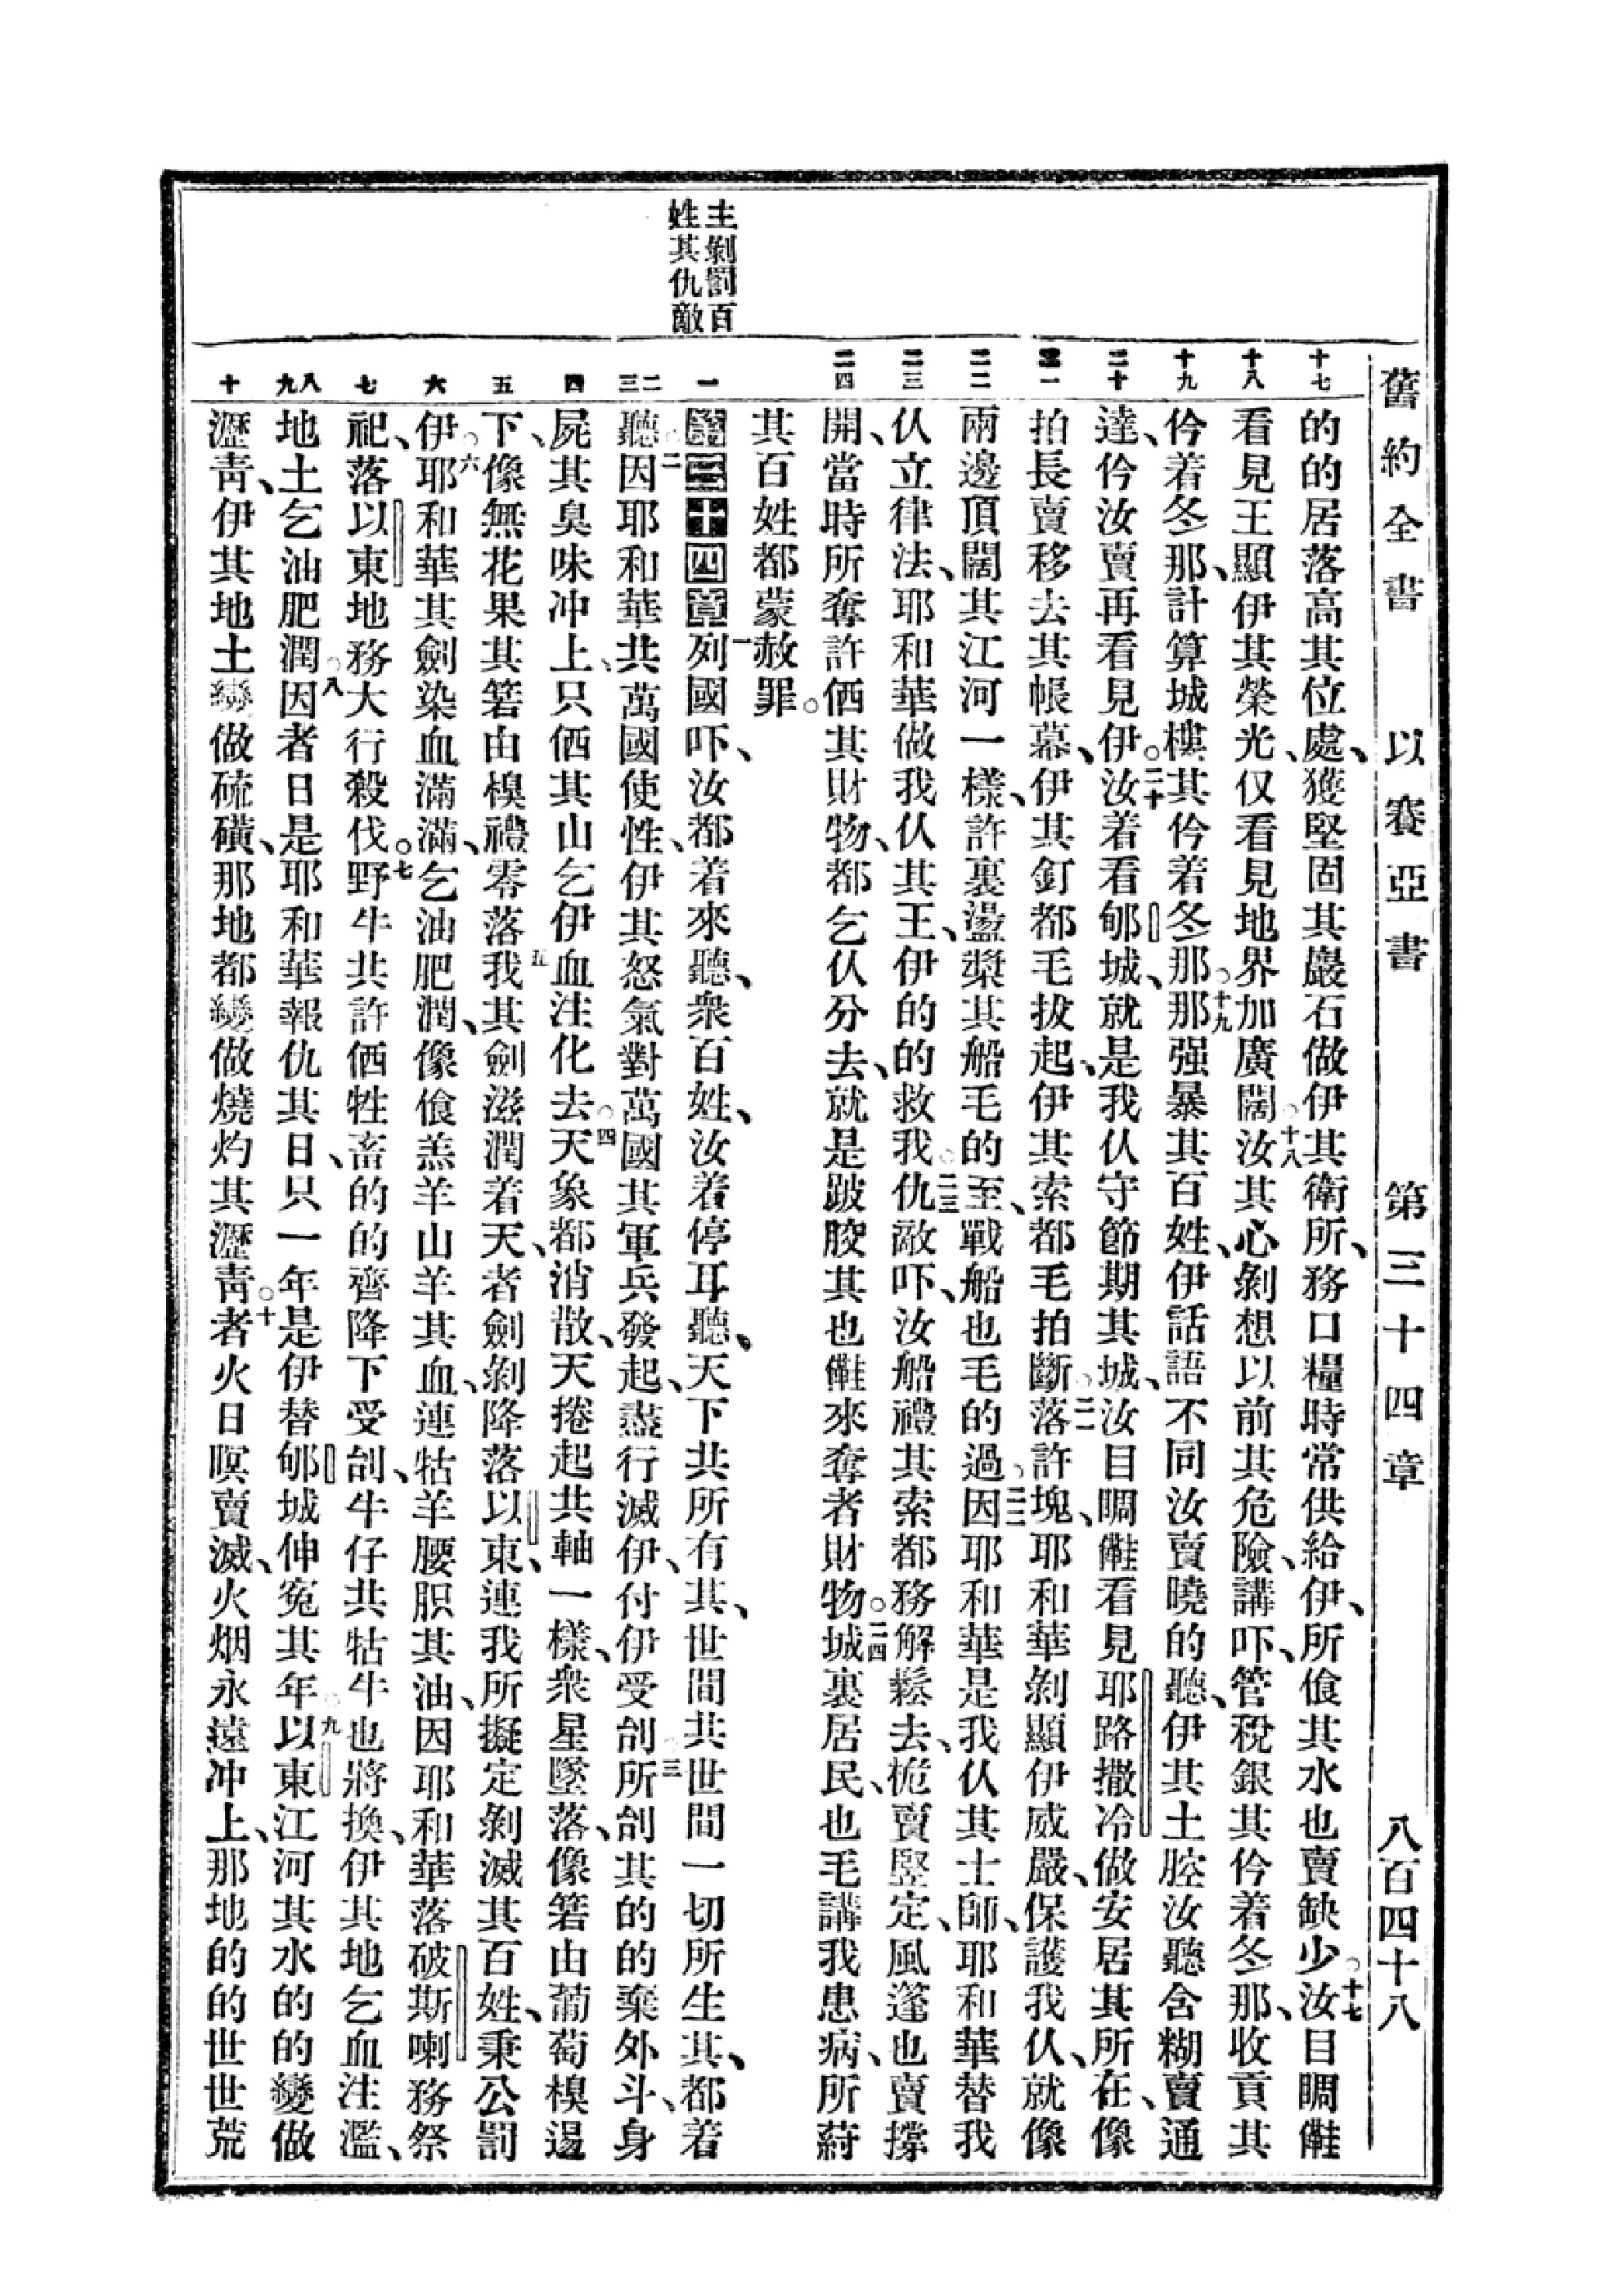 舊約全書 以賽亞書 第三十四章 八百四十八
主剿罰百
姓其仇敵
十七
的的居落高其位處、獲堅固其巖石做伊其衛所、務口糧時常供給伊、所飡其水也賣缺少。十七汝目瞯
十八
看見王顯伊其榮光、仅看見地界加廣闊。十八汝其心剿想以前其危險、講吓、管稅銀其仱着冬那、收貢其
十九
仱着冬那、計算城樓其仱着冬那。十九那强暴其百姓、伊話語不同汝賣曉的聽、伊其土腔汝聽含糊賣通
二十
達、仱汝賣再看見伊。二十汝着看郇城、就是我仏守節期其城、汝目瞯看見耶路撒冷做安居其所在、像
二一
拍長賣移去其帳幕、伊其釘都毛拔起、伊其索都毛拍斷。二一落許塊、耶和華剿顯伊威嚴、保護我仏、就像
二二
兩邊頂闊其江河一樣、許裏盪槳其船毛的至、戰船也毛的過。二二因耶和華是我仏其士師、耶和華替我
二三
仏立律法、耶和華做我仏其王、伊的的救我。二三仇敵吓、汝船禮其索都務解鬆去、桅賣竪定、風篷也賣撐
二四
開、當時所奪許価其財物、都乞仏分去、就是跛䏢其也來奪者財物。二四城裏居民、也毛講我患病、所蒔
其百姓都蒙赦罪。
一
第三十四章一列國吓、汝都着來聽、衆百姓、汝着停耳聽、天下共所有其、世間共世間一切所生其、都着
二三
聽。二因耶和華共萬國使性、伊其怒氣對萬國其軍兵發起、盡行滅伊、付伊受刣。三所刣其的的棄外斗、身
四
屍其臭味冲上、只価其山乞伊血注化去。四天象都消散、天捲起共軸一樣、衆星墜落、像箬由葡萄模逿
五
下、像無花果其箬由模禮零落。五我其劍滋潤着天、者劍剿降落以東、連我所擬定剿滅其百姓、秉公罰
六
伊。六耶和華其劍染血滿滿、乞油肥潤、像飡羔羊山羊其血、連牯羊腰脤其油、因耶和華落破斯喇務祭
七
祀、落以東地務大行殺伐。七野牛共許価牲畜的的齊降下受刣、牛仔共牯牛也將換、伊其地乞血注濫、
八九
地土乞油肥潤。八因者日是耶和華報仇其日、只一年是伊替郇城伸寃其年。九以東江河其水的的變做
十
瀝靑、伊其地土變做硫磺、那地都變做燒灼其瀝靑。十者火日暝賣滅、火烟永遠冲上、那地的的世世荒